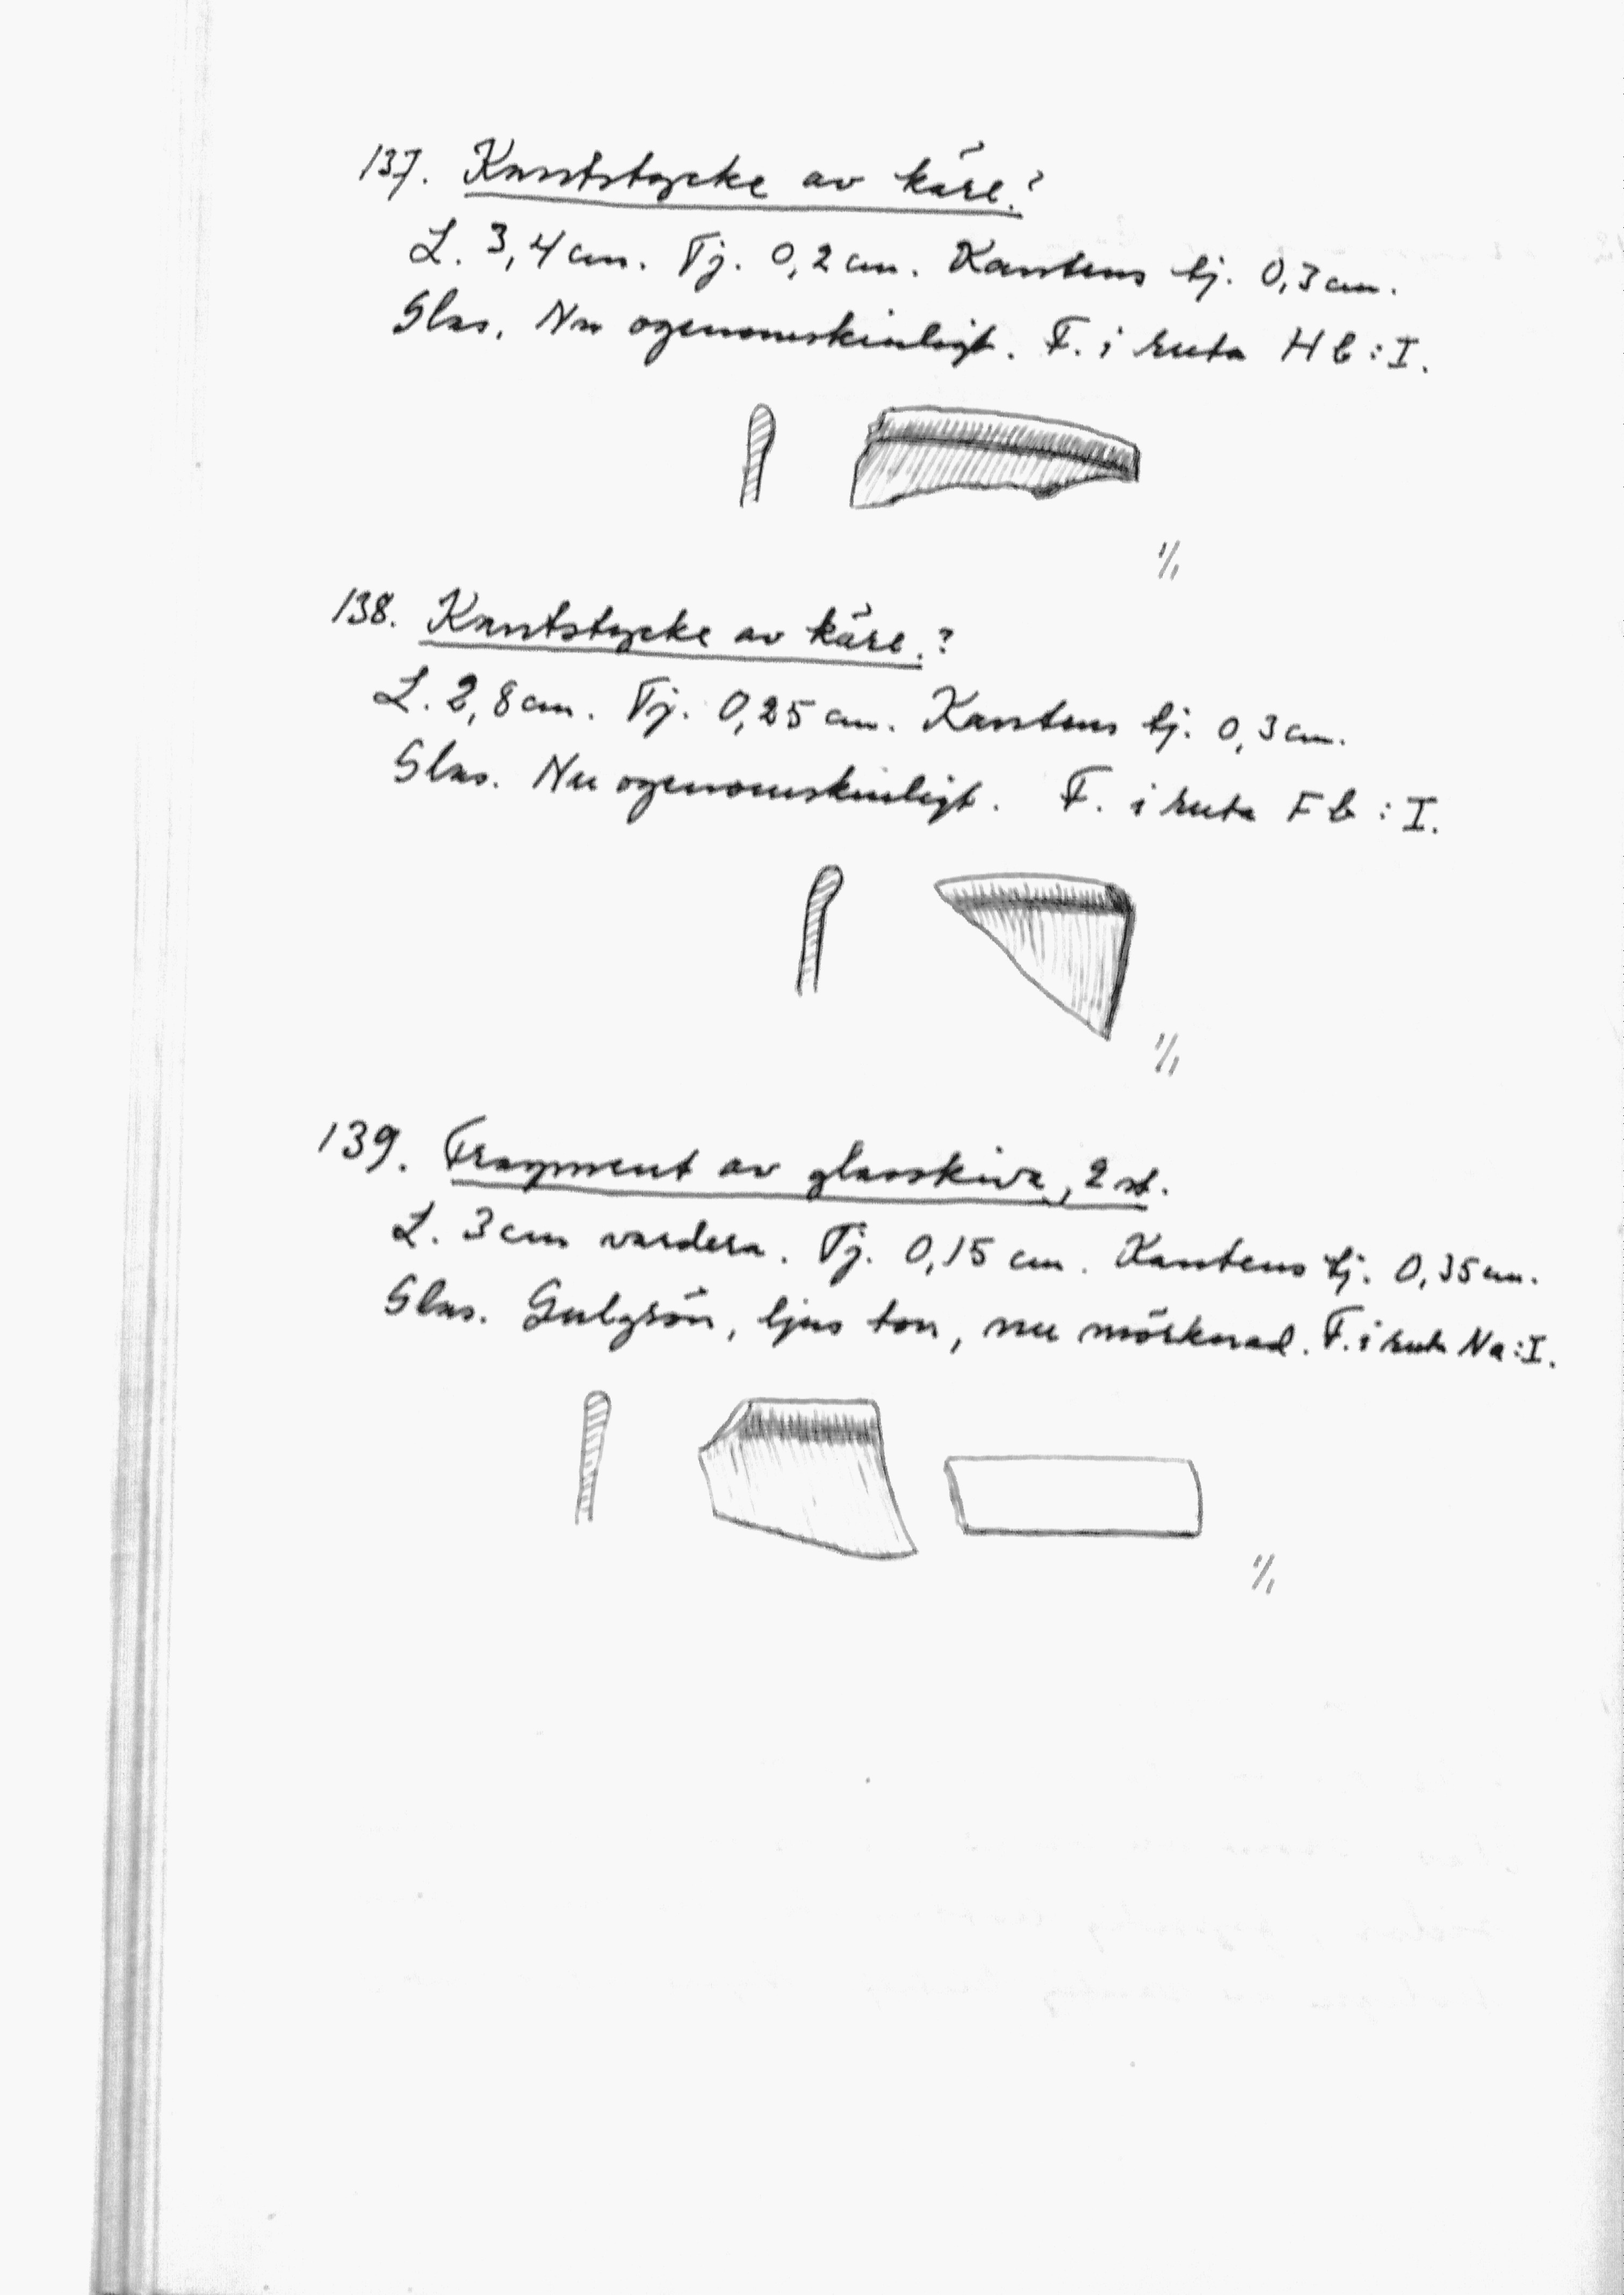 137. Kantstycke av kärl.?
L. 3,4 cm. Tj. 0,2 cm. Kantens tj. 0,3 cm.
Glas. Nu ogenomskinligt. F. i ruta Hb:I.
1/1
138. Kantstycke av kärl.?
L. 2,8 cm. Tj. 0,25 cm. Kantens tj. 0,3 cm.
Glas. Nu ogenomskinligt. F. i ruta Fb:I.
1/1
139. Fragment av glasskiva, 2 st.
L. 3 cm vardera. Tj. 0,15 cm. Kantens tj. 0,35 cm.
Glas. Gulgrön, ljus ton, nu mörknad. F. i ruta Na:I.
1/1